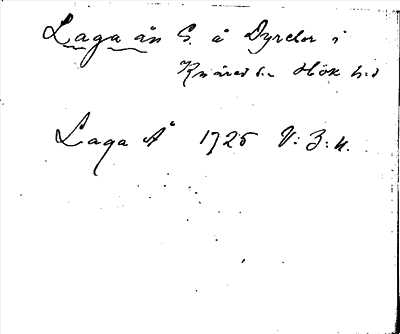 Laga ån S. å Dyrelor i
Knäred sn Hök h:d
Laga Å 1725 V: 3: 4.